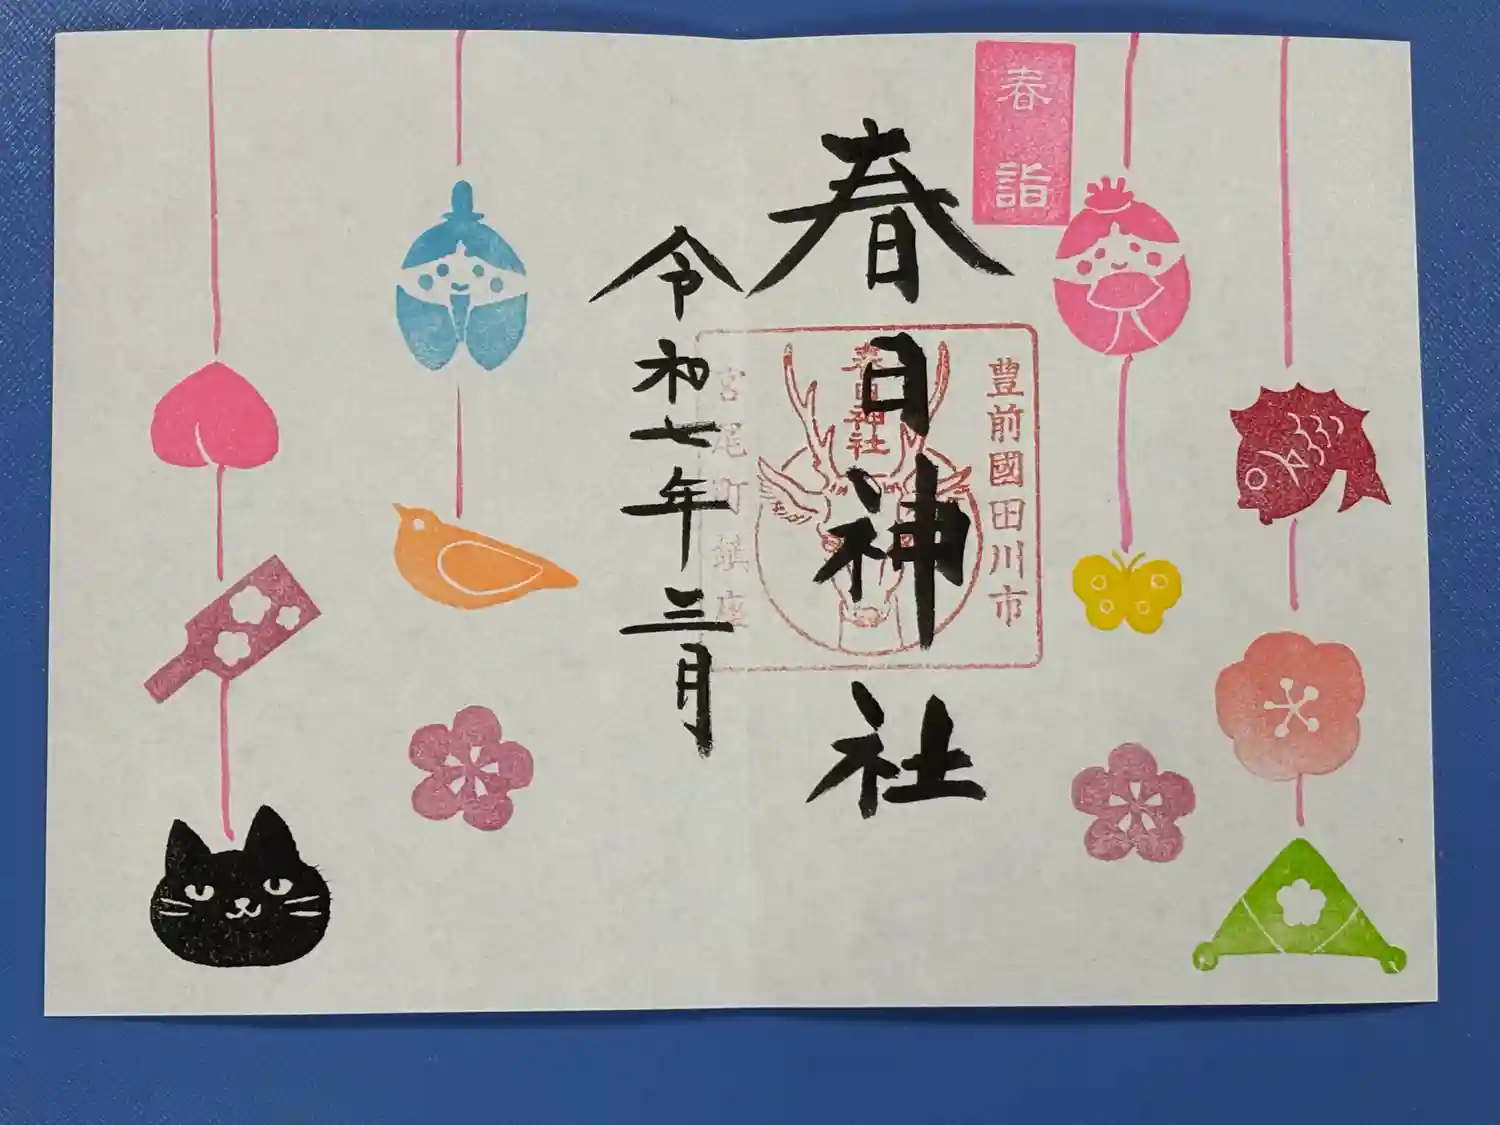 春詣
春日神社
豊前國田川市
春日神社
宮尾町鎮座
令和七年三月